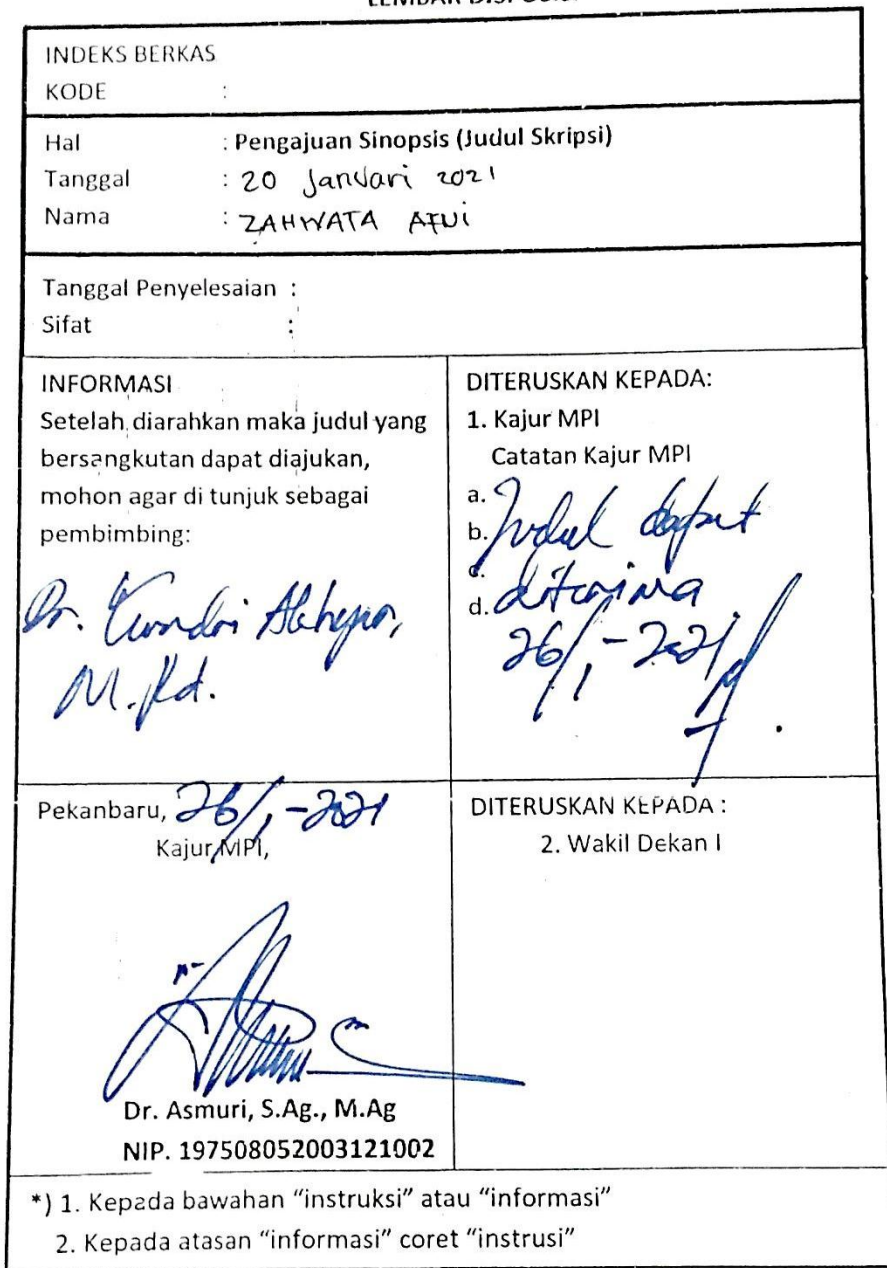 INDEKS BERKAS
KODE :
Hal : Pengajuan Sinopsis (Judul Skripsi)
Tanggal : 20 Januari 2021
Nama : ZAHWATA AFNI
Tanggal Penyelesaian :
Sifat :
INFORMASI
Setelah diarahkan maka judul yang
bersangkutan dapat diajukan,
mohon agar di tunjuk sebagai
pembimbing:
Dr.
M.Pd.
DITERUSKAN KEPADA:
1. Kajur MPI
Catatan Kajur MPI
a. Judul dapat
b.
c.
d. diterima
26/1-2021
Pekanbaru, 26/1-2021
Kajur MPI,
Dr. Asmuri, S.Ag., M.Ag
NIP. 197508052003121002
DITERUSKAN KEPADA :
2. Wakil Dekan I
*) 1. Kepada bawahan "instruksi" atau "informasi"
2. Kepada atasan "informasi" coret "instrusi"